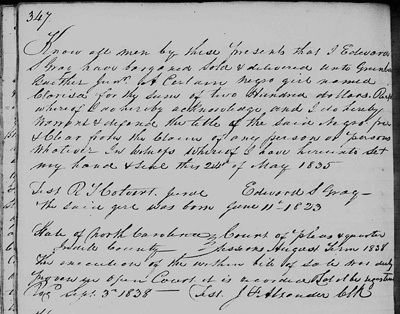 347.
Know all men by these presents that I Edward
S Gray have bargained sold & delivered unto
Gaither Junr. A Certain negro girl named
Clarissa for the Sum of two Hundred dollars. Rect
whereof I do hereby acknowledge, and I do hereby
warrant & defend the title of the said Negro free
& Clear from the Claim of any person or persons
whatever In witness whereof I have hereunto set
my hand & seal this 24th of May 1835
Test R F Edward S Gray
the said girl was born June 11th 1823
State of North Carolina Court of pleas & quarter
County Sessions August Term 1838
The execution of the within bill of sale was duly
proven in open Court it is ordered to be registered
Sept. 3rd 1838 Test. J F Alexander Clk